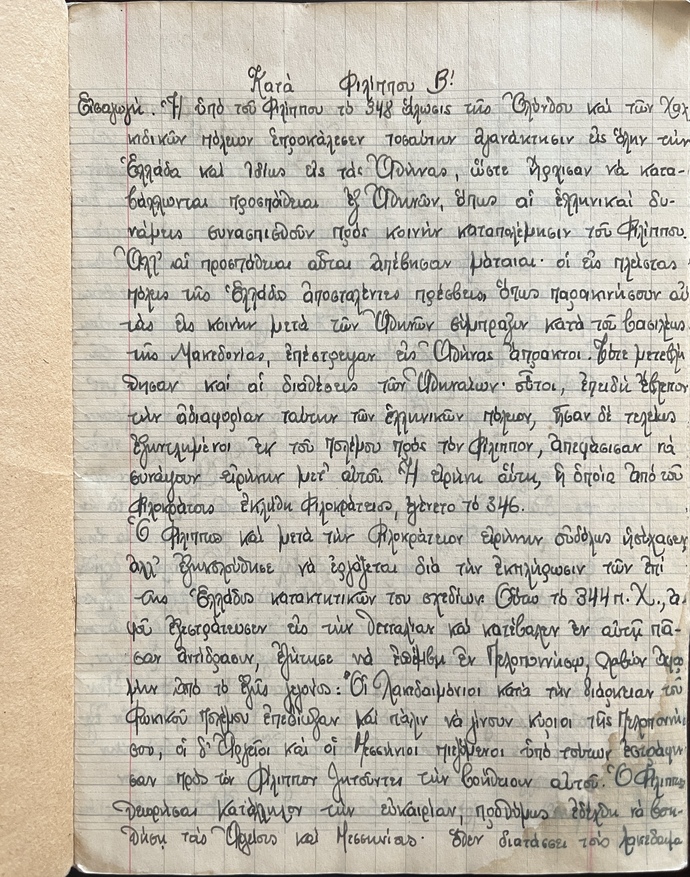 Κατὰ Φιλίππου Β!
Εἰσαγωγή. Ἡ ὑπὸ τοῦ Φιλίππου τὸ 348 ἅλωσις τῆς Ὀλύνθου καὶ τῶν Χαλ
κιδικῶν πόλεων ἐπροκάλεσεν τοσαύτην ἀγανάκτησιν εἰς ὅλην τὴν
Ἑλλάδα καὶ ἰδίως εἰς τὰς Ἀθήνας, ὥστε ἤρχισαν νὰ κατα-
βάλλωνται προσπάθειαι ἐξ Ἀθηνῶν, ὅπως αἱ ἑλληνικαὶ δυ-
νάμεις συνασπισθοῦν πρὸς κοινὴν καταπολέμησιν τοῦ Φιλίππου.
Ἀλλ' αἱ προσπάθειαι αὗται ἀπέβησαν μάταιαι· οἱ εἰς πλείστας
πόλεις τῆς Ἑλλάδος ἀποσταλέντες πρέσβεις, ὅπως παρακινήσουν αὐ
τὰς εἰς κοινὴν μετὰ τῶν Ἀθηνῶν σύμπραξιν κατὰ τοῦ βασιλέως
τῆς Μακεδονίας, ἐπέστρεψαν εἰς Ἀθήνας ἄπρακτοι. Τότε μετεβλή
θησαν καὶ αἱ διαθέσεις τῶν Ἀθηναίων· οὗτοι, ἐπειδὴ ἔβλεπον
τὴν ἀδιαφορίαν ταύτην τῶν ἑλληνικῶν πόλεων, ἦσαν δὲ τελείως
ἐξηντλημένοι ἐκ τοῦ πολέμου πρὸς τὸν Φίλιππον, ἀπεφάσισαν νὰ
συνάψουν εἰρήνην μετ' αὐτοῦ. Ἡ εἰρήνη αὕτη, ἡ ὁποία ἀπὸ τοῦ
Φιλοκράτους ἐκλήθη Φιλοκράτειος, ἐγένετο τὸ 346.
Ὁ Φίλιππος καὶ μετὰ τὴν Φιλοκράτειον εἰρήνην οὐδόλως ἡσύχασεν,
ἀλλ' ἐξηκολούθησε νὰ ἐργάζεται διὰ τὴν ἐκπλήρωσιν τῶν ἐπὶ
τῆς Ἑλλάδος κατακτητικῶν του σχεδίων. Οὕτω τὸ 344 π.Χ., ἀ
φοῦ ἐξεστράτευσεν εἰς τὴν Θετταλίαν καὶ κατέβαλεν ἐν αὐτῇ πᾶ-
σαν ἀντίδρασιν, ἐζήτησε νὰ ἐπέμβῃ ἐν Πελοποννήσῳ, λαβὼν ἀφορ
μὴν ἀπὸ τὸ ἑξῆς γεγονός: Οἱ Λακεδαιμόνιοι κατὰ τὴν διάρκειαν τοῦ
Φωκικοῦ πολέμου ἐπεδίωξαν καὶ πάλιν νὰ γίνουν κύριοι τῆς Πελοποννή
σου, οἱ δ' Ἀργεῖοι καὶ οἱ Μεσσήνιοι πιεζόμενοι ὑπὸ τούτων ἐστράφη
σαν πρὸς τὸν Φίλιππον ζητοῦντες τὴν βοήθειαν αὐτοῦ. Ὁ Φίλιππος
θεωρήσας κατάλληλον τὴν εὐκαιρίαν, προθύμως ἐδέχθη νὰ βοη-
θήσῃ τοὺς Ἀργείους καὶ Μεσσηνίους· ὅθεν διατάσσει τοὺς Λακεδαιμο